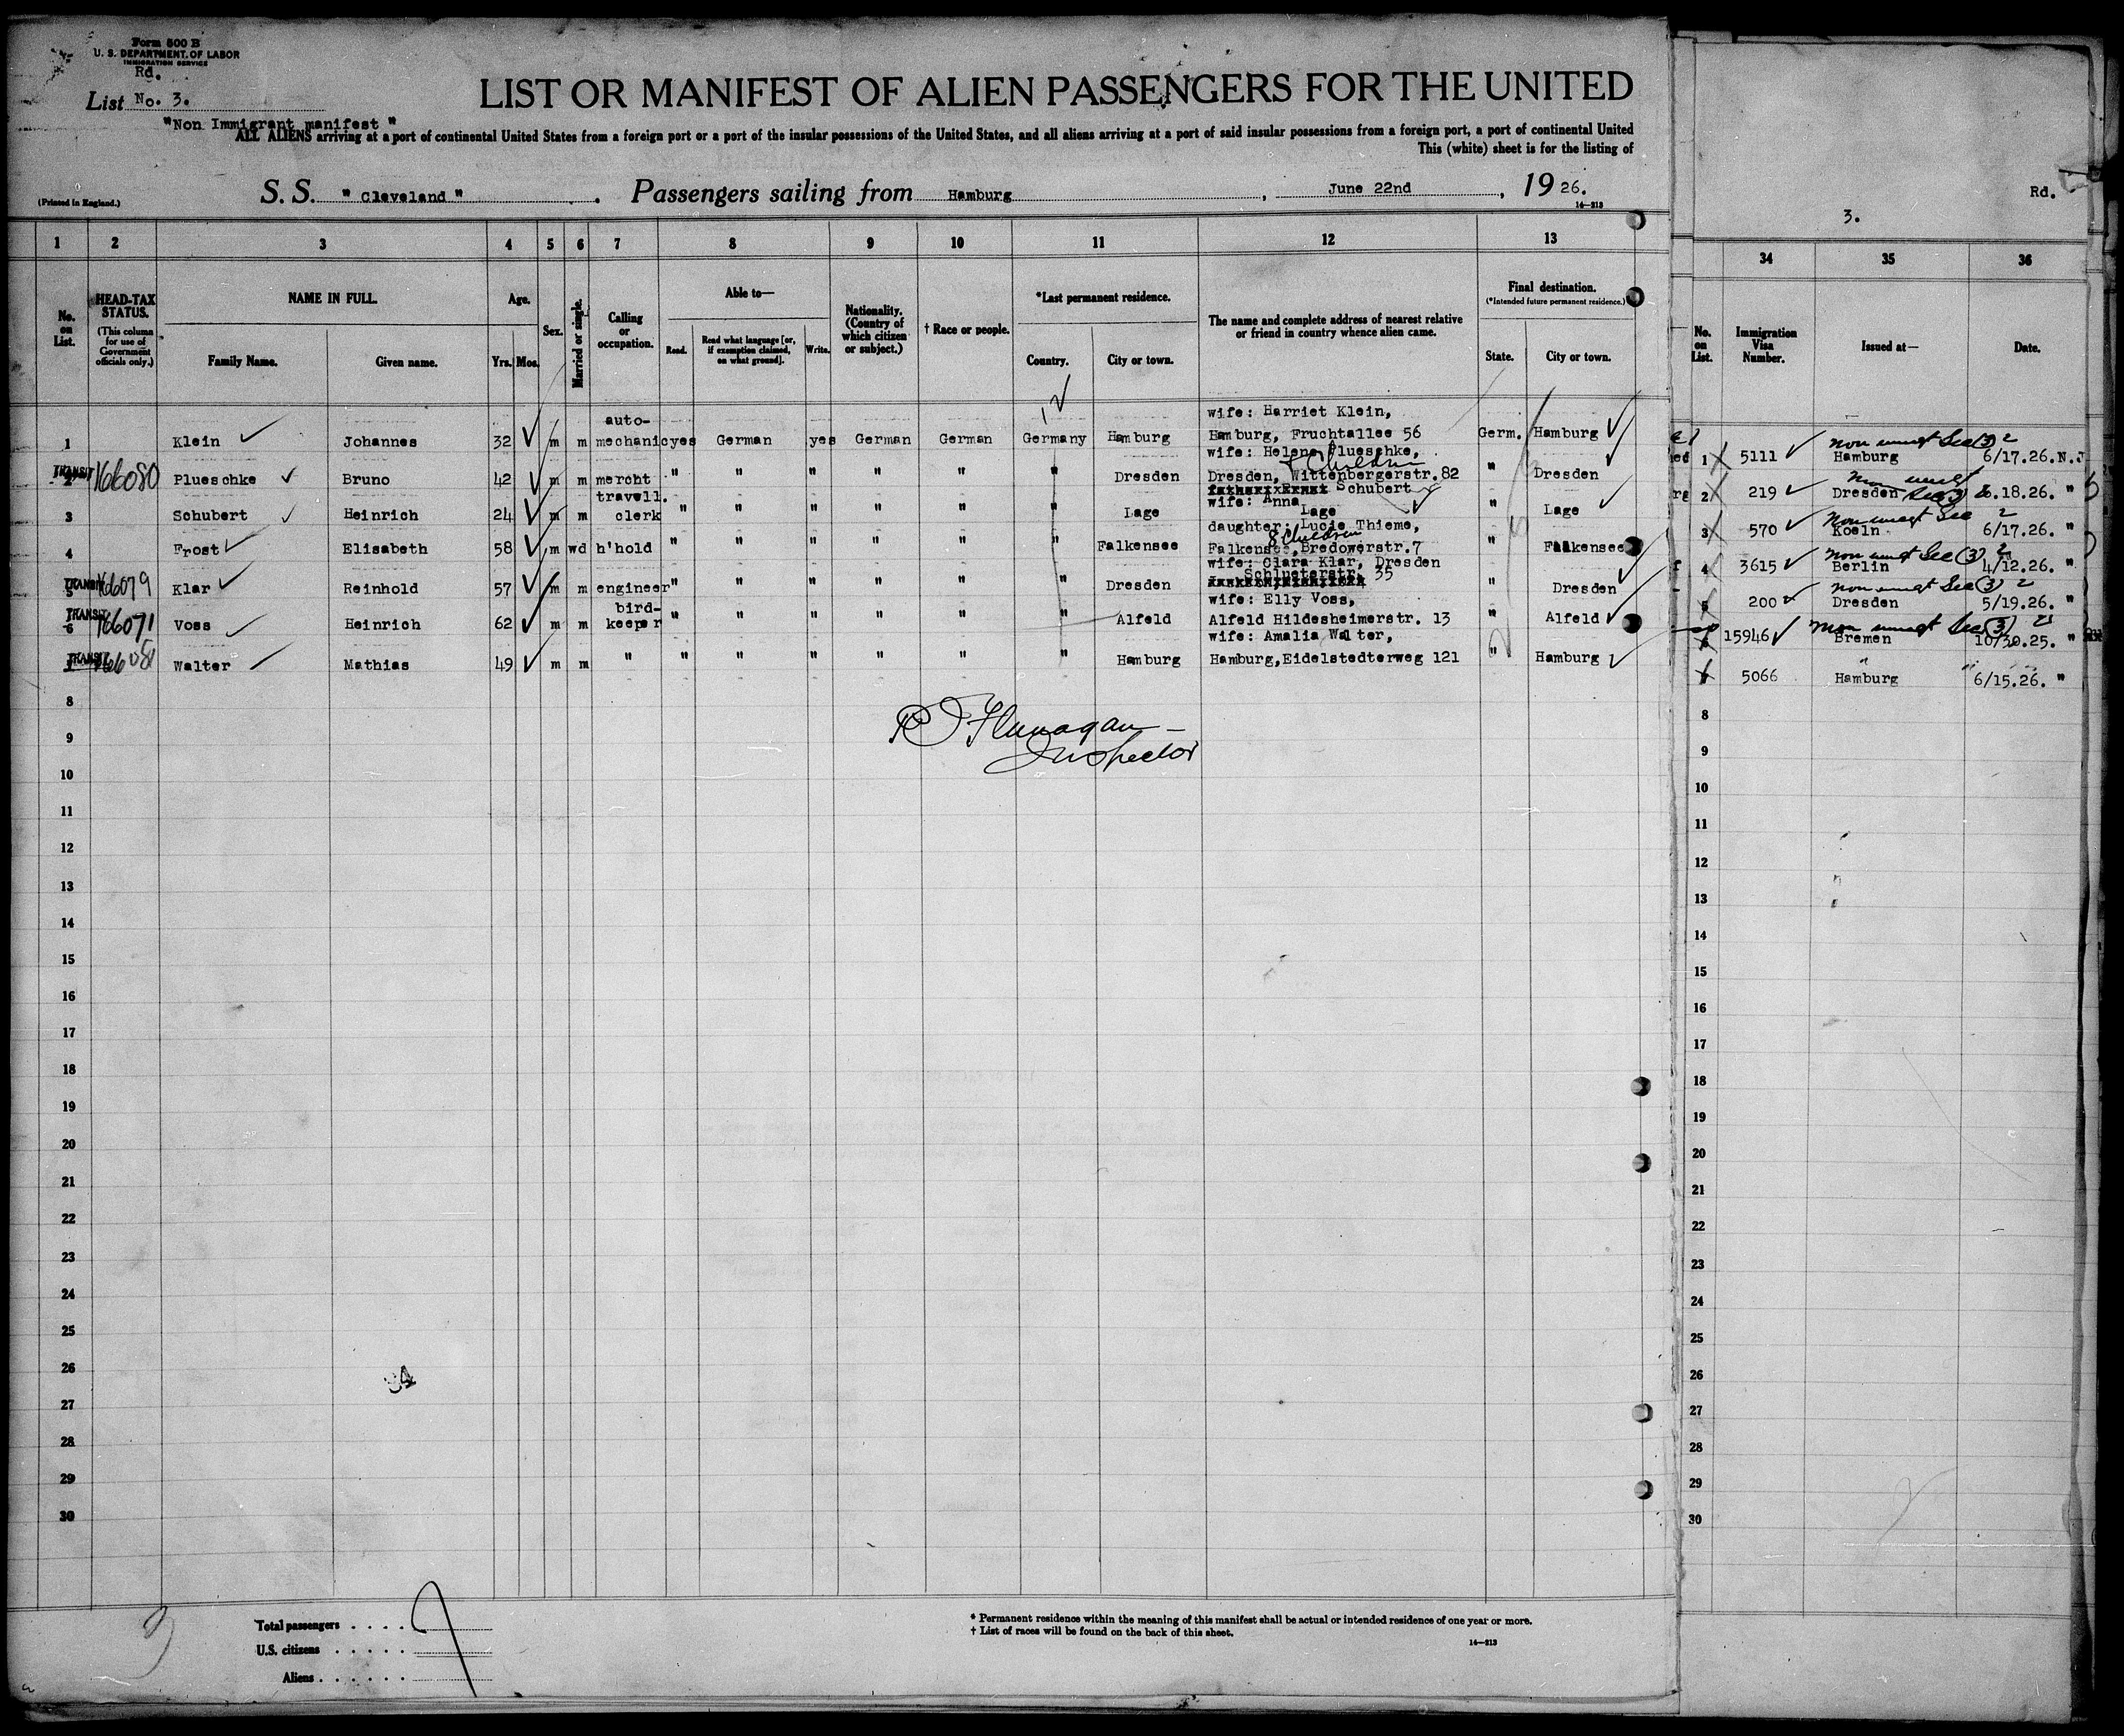 Form 500 B
U. S. DEPARTMENT OF LABOR
IMMIGRATION SERVICE
Rd.
List No. 3.
"Non Immigrant manifest "
LIST OR MANIFEST OF ALIEN PASSENGERS FOR THE UNITED
ALL ALIENS arriving at a port of continental United States from a foreign port or a port of the insular possessions of the United States, and all aliens arriving at a port of said insular possessions from a foreign port, a port of continental United
This (white) sheet is for the listing of
(Printed in England.)
S. S. " Cleveland " . Passengers sailing from Hamburg , June 22nd , 19 26.
14—213
Rd.
3.
1 2 3 4 5 6 7 8 9 10 11 12 13
34 35 36
No. on List.
HEAD-TAX STATUS.
(This column for use of Government officials only.)
NAME IN FULL.
Family Name. Given name.
Age.
Yrs. Mos.
Sex.
Married or single.
Calling or occupation.
Able to—
Read. Read what language [or, if exemption claimed, on what ground]. Write.
Nationality. (Country of which citizen or subject.)
† Race or people.
*Last permanent residence.
Country. City or town.
The name and complete address of nearest relative or friend in country whence alien came.
Final destination.
(*Intended future permanent residence.)
State. City or town.
No. on List.
Immigration Visa Number.
Issued at—
Date.
1 Klein Johannes 32 m m auto-mechanic yes German yes German German Germany Hamburg wife: Harriet Klein, Hamburg, Fruchtallee 56 Germ. Hamburg
TRANSIT 2 166080 Plueschke Bruno 42 m m mercht " " " " " " Dresden wife: Helene Plueschke, Children Dresden, Wittenbergerstr. 82 " Dresden
3 Schubert Heinrich 24 m m travell. clerk " " " " " " Lage Schubert wife: Anna Lage " Lage
4 Frost Elisabeth 58 m wd h'hold " " " " " " Falkensee daughter: Lucie Thieme, 8 Children Falkensee, Bredowerstr. 7 " Falkensee
TRANSIT 5 166079 Klar Reinhold 57 m m engineer " " " " " " Dresden wife: Clara Klar, Dresden Schlueterstr. 35 " Dresden
TRANSIT 6 166071 Voss Heinrich 62 m m bird-keeper " " " " " " Alfeld wife: Elly Voss, Alfeld Hildesheimerstr. 13 " Alfeld
TRANSIT 7 Walter Mathias 49 m m " " " " " " " Hamburg wife: Amalia Walter, Hamburg, Eidelstedterweg 121 " Hamburg
1 5111 non immgt Sec (3) 2 Hamburg 6/17.26. N.J
2 219 non immgt Sec (3) 2 Dresden 6.18.26. "
3 570 non immgt Sec 2 Koeln 6/17.26. "
4 3615 non immgt Sec (3) 2 Berlin 4/12.26. "
5 200 non immgt Sec (3) 2 Dresden 5/19.26. "
15946 non immgt Sec (3) 2 Bremen 10/30.25. "
5066 " Hamburg " 6/15.26. "
R J Flanagan
Inspector
8
9
10
11
12
13
14
15
16
17
18
19
20
21
22
23
24
25
26
27
28
29
30
8
9
10
11
12
13
14
15
16
17
18
19
20
21
22
23
24
25
26
27
28
29
30
Total passengers . . . .
U.S. citizens . . . . . .
Aliens . . . . . .
* Permanent residence within the meaning of this manifest shall be actual or intended residence of one year or more.
† List of races will be found on the back of this sheet.
14—213